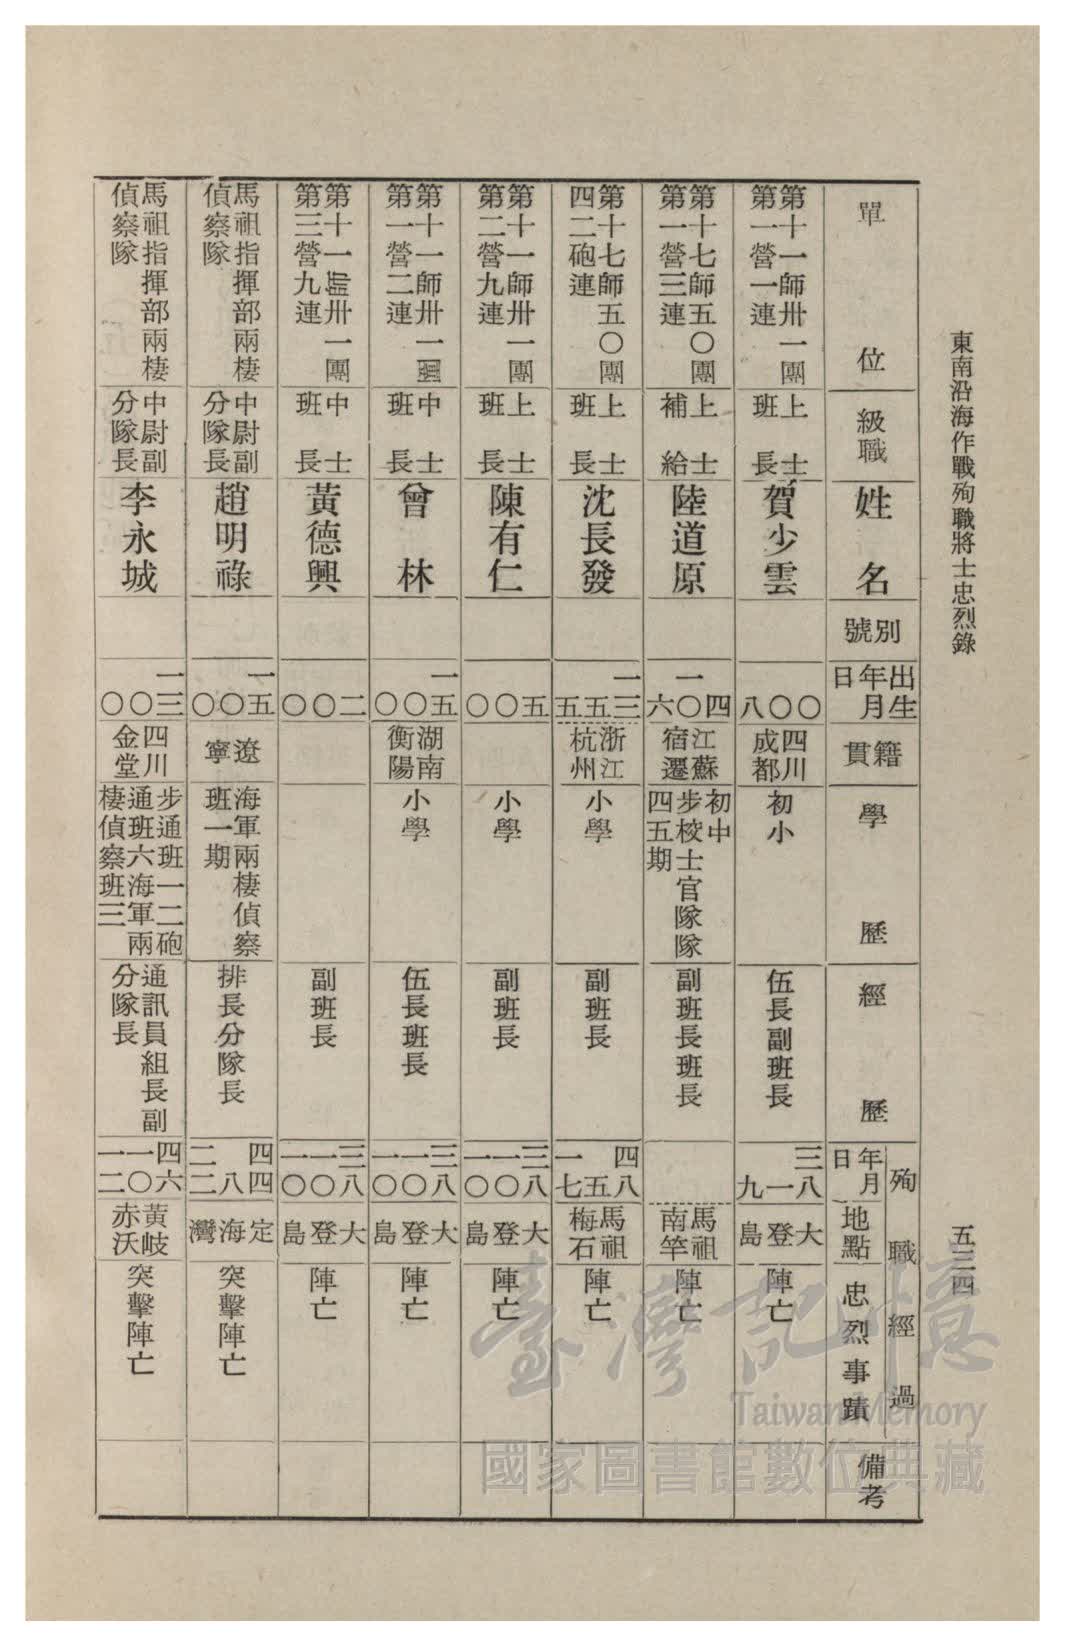 東南沿海作戰殉職將士忠烈錄
五二四
單位
級職
姓名
別號
出生年月日
籍貫
學歷
經歷
殉職經過
年月日
地點
忠烈事蹟
備考
第十一師卅一團
第一營一連
上士
班長
賀少雲
〇〇
〇
八
四川
成都
初小
伍長副班長
三八
一
九
大登島
陣亡
第十七師五〇團
第一營三連
上士
補給
陸道原
四
一〇
六
江蘇
宿遷
初中
步校士官隊隊
四五期
副班長班長
馬祖
南竿
陣亡
第十七師五〇團
四二砲連
上士
班長
沈長發
一三
五
五
浙江
杭州
小學
副班長
四八
五
一七
馬祖
梅石
陣亡
第十一師卅一團
第二營九連
上士
班長
陳有仁
五
〇
〇
小學
副班長
三八
一〇
一〇
大登島
陣亡
第十一師卅一團
第一營二連
中士
班長
曾林
一五
〇
〇
湖南
衡陽
小學
伍長班長
三八
一〇
一〇
大登島
陣亡
第十一師卅一團
第三營九連
中士
班長
黃德興
二
〇
〇
副班長
三八
一〇
一〇
大登島
陣亡
馬祖指揮部兩棲
偵察隊
中尉副
分隊長
趙明祿
一五
〇
〇
遼寧
海軍兩棲偵察
班一期
排長分隊長
四四
八
二二
定海灣
突擊陣亡
馬祖指揮部兩棲
偵察隊
中尉副
分隊長
李永城
一三
〇
〇
四川
金堂
步通班一二砲
通班六海軍兩
棲偵察班三
通訊員組長副
分隊長
四六
一〇
一二
黃岐
赤沃
突擊陣亡
臺灣記憶
Taiwan Memory
國家圖書館數位典藏